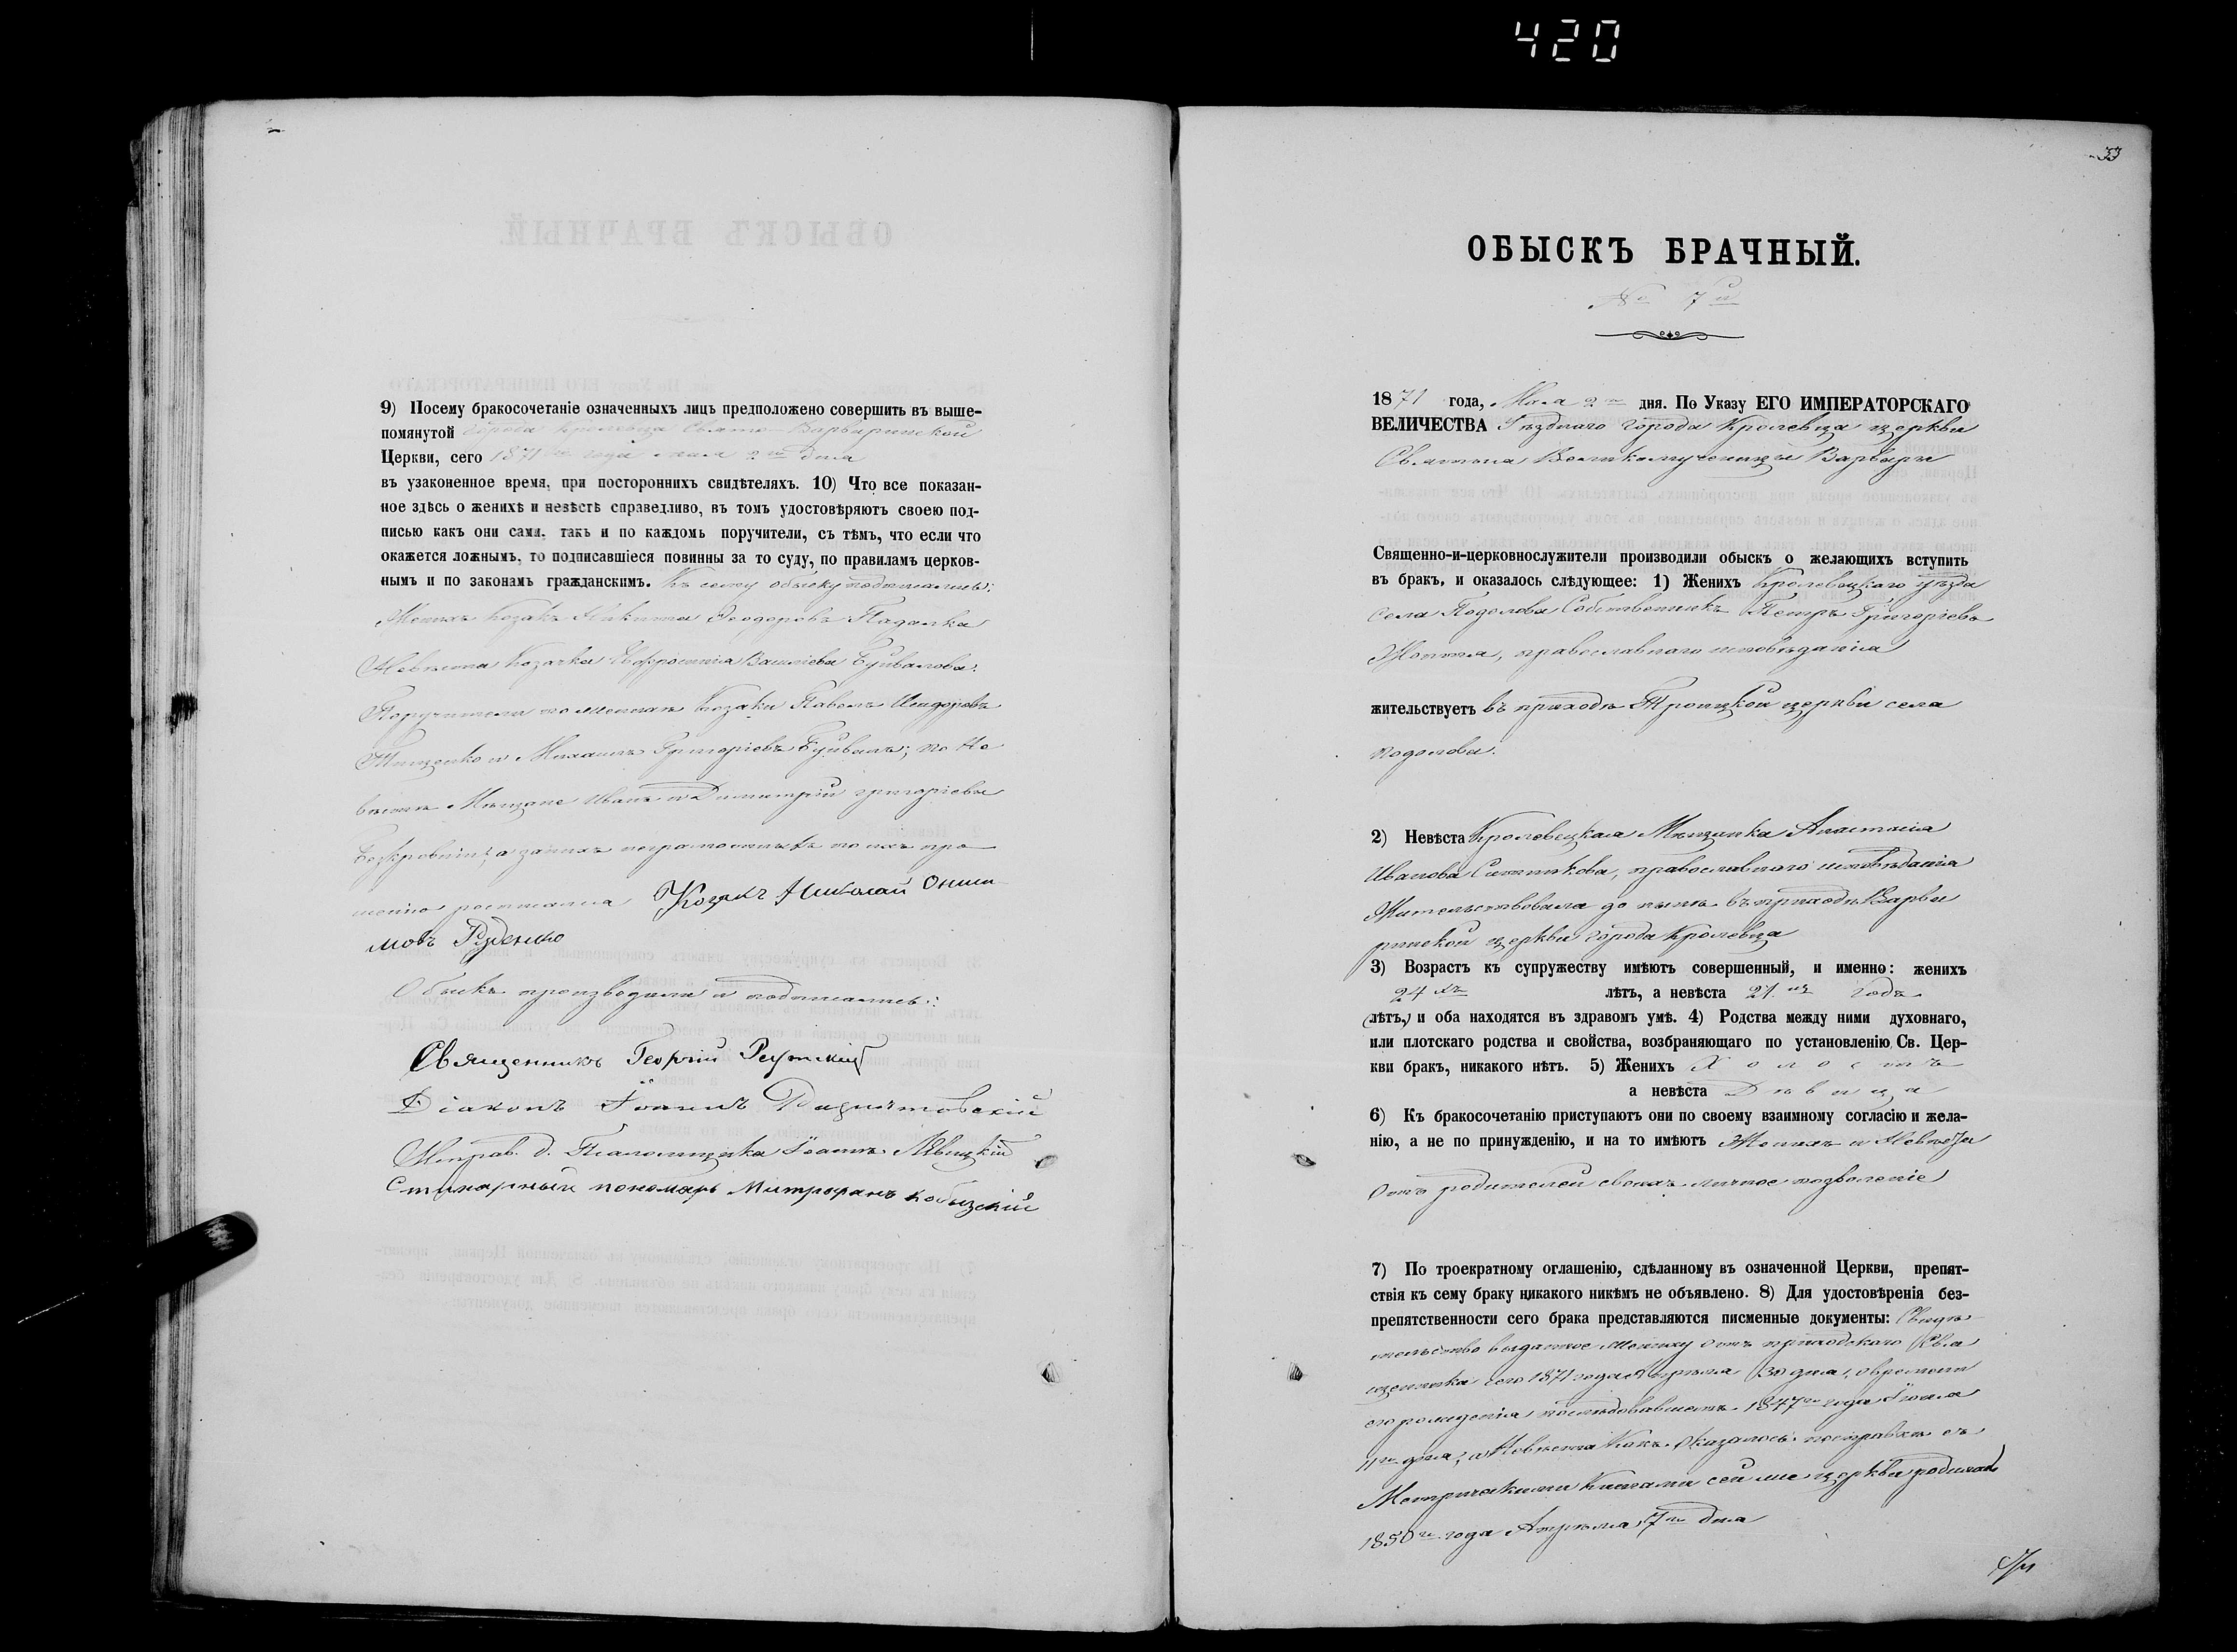 420
9) Посему бракосочетаніе означенныхъ лицъ предположено совершить въ выше-
помянутой города Кролевца Свято-Варваринской
Церкви, сего 1871го года мая 2го дня
въ узаконенное время, при постороннихъ свидѣтеляхъ. 10) Что все показан-
ное здѣсь о женихѣ и невѣстѣ справедливо, въ томъ удостовѣряютъ своею под-
писью какъ они сами, такъ и по каждомъ поручители, съ тѣмъ, что если что
окажется ложнымъ, то подписавшіеся повинны за то суду, по правиламъ церков-
нымъ и по законамъ гражданскимъ. Къ сему обыску подписались:
Женихъ козакъ Никита Ѳеодоровъ Падалка
Невѣста Козачка Евфросинія Василіева Буивалова.
Поручители по женихѣ Козаки Павелъ Исидоровъ
Тищенко и Михаилъ Григоріевъ Буивалъ; по Не
вѣстѣ Мѣщане Иванъ и Димитрій Григоріевы
Безкровніи; а за нихъ неграмотныхъ по ихъ про
шенію росписался Козакъ НиколайОниси
мовъ Руденко
Обыскъ производили и подписались:
Священникъ Георгій
Діаконъ Іоаннъ
Исправ. д. Псаломщика Іоаннъ Левицкій
Стихарный пономарь Митрофанъ Кобызскій
33
ОБЫСКЪ БРАЧНЫЙ.
№ 7й
1871 года, Мая 2го дня. По Указу ЕГО ИМПЕРАТОРСКАГО
ВЕЛИЧЕСТВА Уѣзднаго города Кролевца церкви
Святыя Великомученицы Варвары
Священно-и-церковнослужители производили обыскъ о желающихъ вступить
въ бракъ, и оказалось слѣдующее: 1) Женихъ Кролевецкаго уѣзда
села Подолова Собственникъ Петръ Григоріевъ
православнаго исповѣданія
жительствуетъ въ приходѣ Троицкой церкви села
Подолова.
2) Невѣста Кролевецкая Мѣщанка Анастасія
Иванова Ситникова, православнаго исповѣданія
Жительствовала до нынѣ въ приходѣ Варва
ринской церкви города Кролевца
3) Возрастъ къ супружеству имѣютъ совершенный, и именно: женихъ
24хъ лѣтъ, а невѣста 21.нъ годъ
(лѣтъ,) и оба находятся въ здравомъ умѣ. 4) Родства между ними духовнаго,
или плотскаго родства и свойства, возбраняющаго по установленію Св. Цер-
кви бракъ, никакого нѣтъ. 5) Женихъ Холостъ
а невѣста Дѣвица
6) Къ бракосочетанію приступаютъ они по своему взаимному согласію и жела-
нію, а не по принужденію, и на то имѣютъ Женихъ и Невѣста
Отъ родителей своихъ личное позволеніе
7) По троекратному оглашенію, сдѣланному въ означенной Церкви, препят-
ствія къ сему браку никакого никѣмъ не объявлено. 8) Для удостовѣренія без-
препятственности сего брака представляются писменные документы: Свидѣ-
тельство выданное Жениху отъ приходскаго Свя
щенника сего 1871 года Апрѣля 30 дня, о времени
его рожденія послѣдовавшемъ 1847го года Іюля
11го дня; а Невѣста Какъ Оказалось по справкѣ съ
Метрическими Книгами сей же церкви родилась
1850го года Апрѣля 7го дня